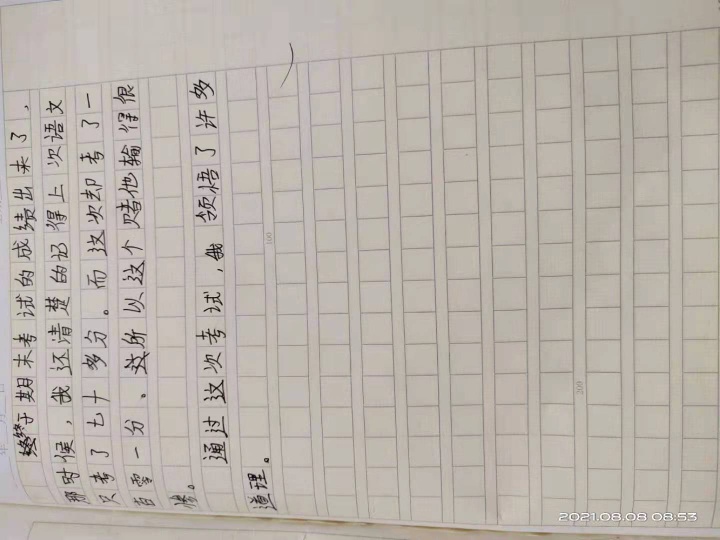 终于期末考试的成绩出来了，
那时候，我还清楚的记得上次语文
只考了七十多分。而这次却考了一
百零一分。所以这个赌他输得很
惨。
通过这次考试，我领悟了许多
道理。
100
200
2021.08.08 08:53